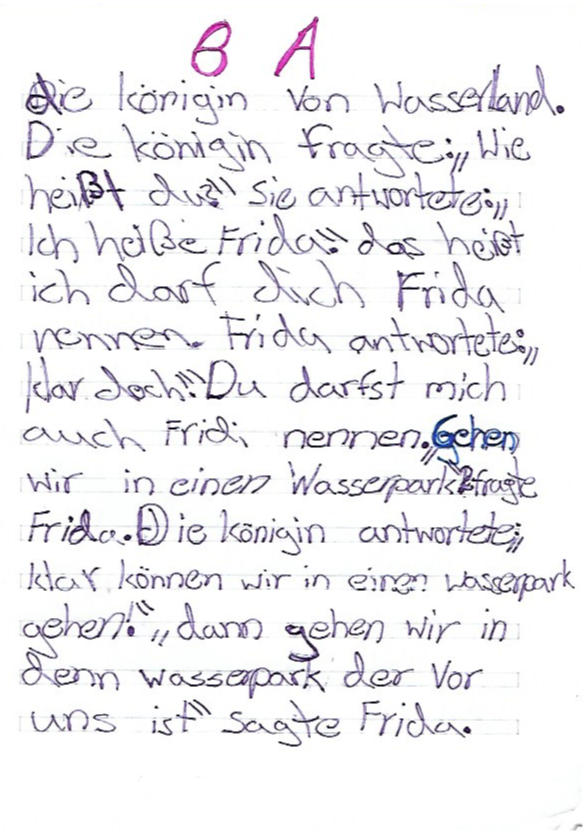 B A
die königin von Wasserland.
Die königin fragte:„Wie
heißt du?" sie antwortete:„
Ich heiße Frida." das heißt
ich darf dich Frida
nennen. Frida antwortete:„
klar doch!"Du darfst mich
auch Fridi nennen.„Gehen
wir in einen Wasserpark"?fragte
Frida.Die königin antwortete„
klar können wir in einen wasserpark
gehen!"„dann gehen wir in
denn wasserpark der vor
uns ist" sagte Frida.